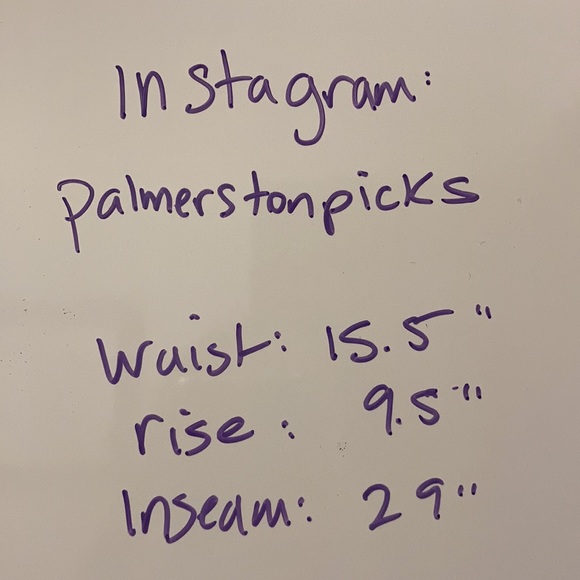 Instagram:
palmerstonpicks
Waist: 15.5"
rise: 9.5"
Inseam: 29"